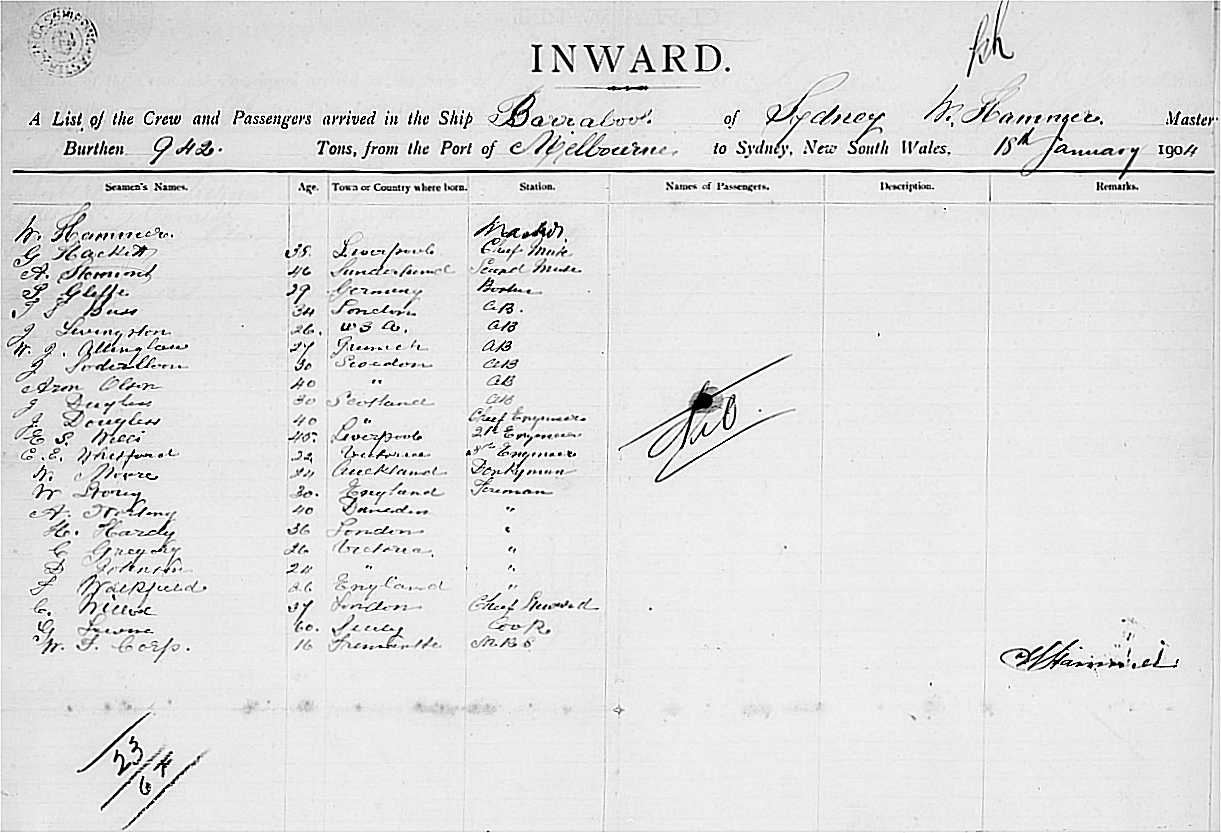 INWARD.
A List of the Crew and Passengers arrived in the Ship Barrabool of Sydney W. Hammer. Master
Burthen 942. Tons, from the Port of Melbourne to Sydney, New South Wales, 18th January 1904
Seamen's Names. Age. Town or Country where born. Station. Names of Passengers. Description. Remarks.
W. Hammer. Master
G Hackett 38. Liverpool Chief Mate
A. 46 Sunderland Second Mate
29 Germany
Buss 34 London AB.
J Livingston 26. U S A. AB
W. J. 27 AB
J 30 AB
Aron Olsen 40 " AB
J Dugless 30 Scotland AB
J. Dougless 40 " Chief Engineer
E S. Wills 45. Liverpool 2nd Engineer
C. E. Whitford 22 Victoria 3rd Engineer
W. Moore 24 Auckland Donkyman
W Storey 30. England Fireman
A. 40 Dunedin "
H. Hardy 36 London "
C Gregory 26 Victoria. "
Johnson 24 " "
Walkfield 26 England "
C. 37 London Chief Steward
G 60. Cook
W. F. Corp. 16 Fremantle
Nil.
W Hammer
23/64